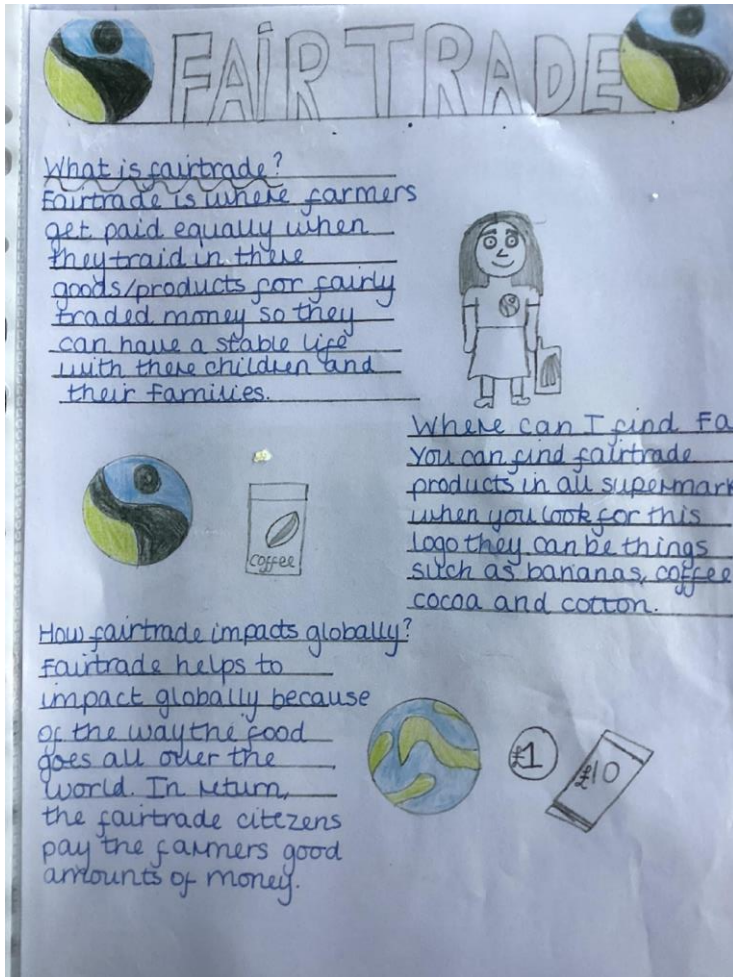 FAIR TRADE
What is fairtrade?
Fairtrade is where farmers
get paid equally when
they traid in there
goods/products for fairly
traded money so they
can have a stable life
with there children and
their families.
Where can I find Fa
You can find fairtrade
products in all supermark
when you look for this
logo they can be things
such as bananas, coffee
cocoa and cotton.
coffee
How fairtrade impacts globally?
Fairtrade helps to
impact globally because
of the way the food
goes all over the
world. In return,
the fairtrade citezens
pay the farmers good
amounts of money.
£1
£10